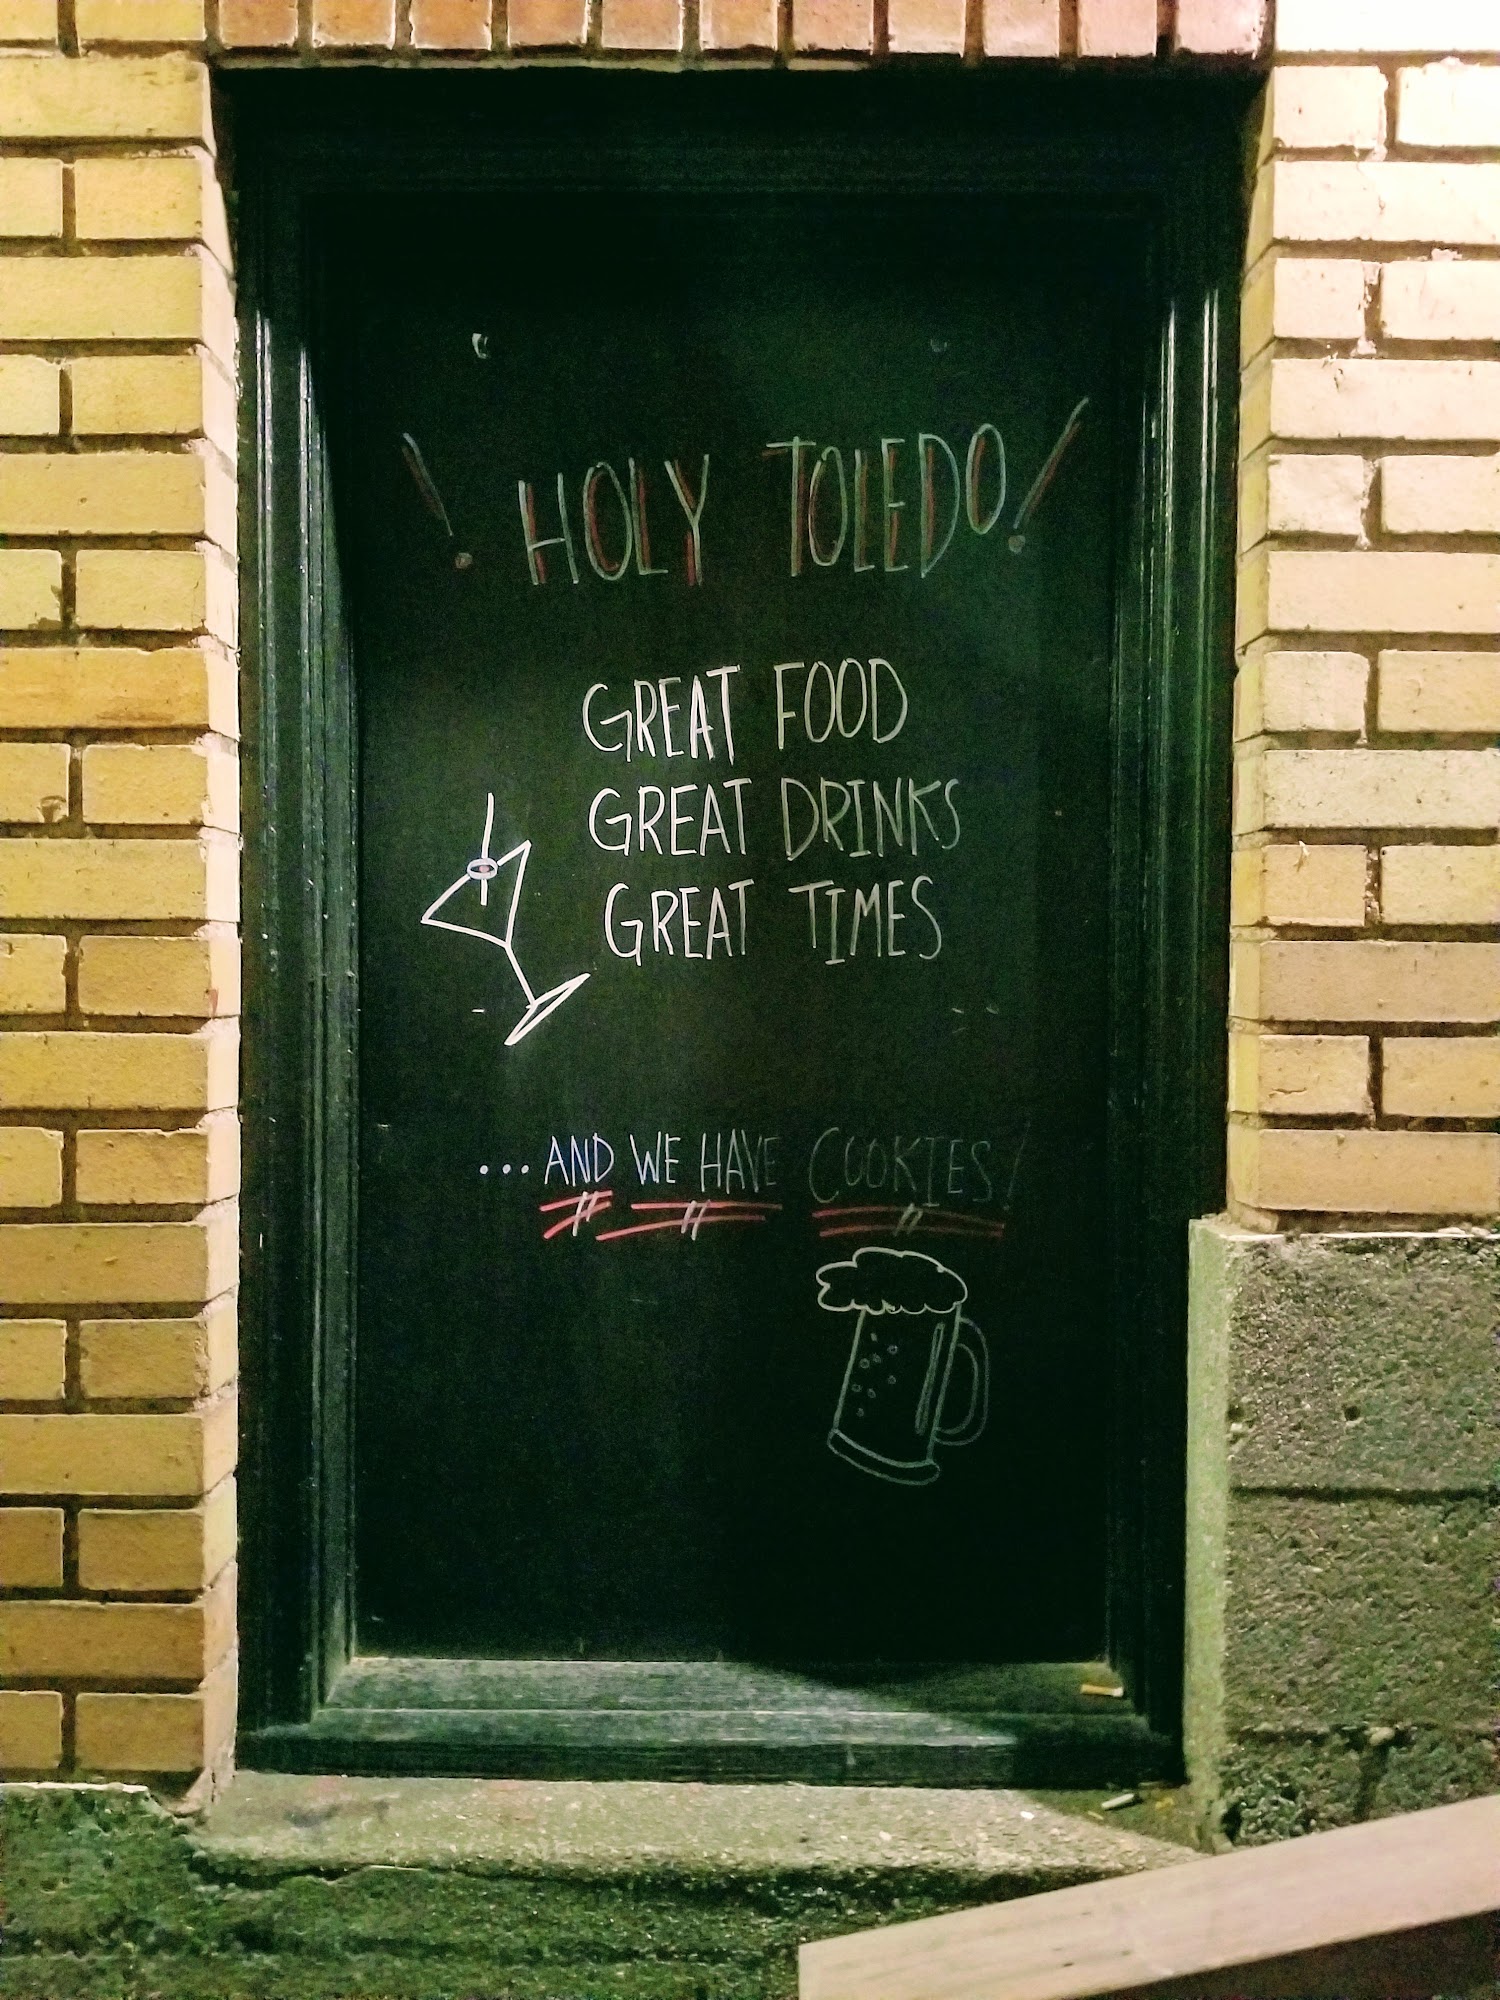 ! HOLY TOLEDO!
GREAT FOOD
GREAT DRINKS
GREAT TIMES
...AND WE HAVE COOKIES!